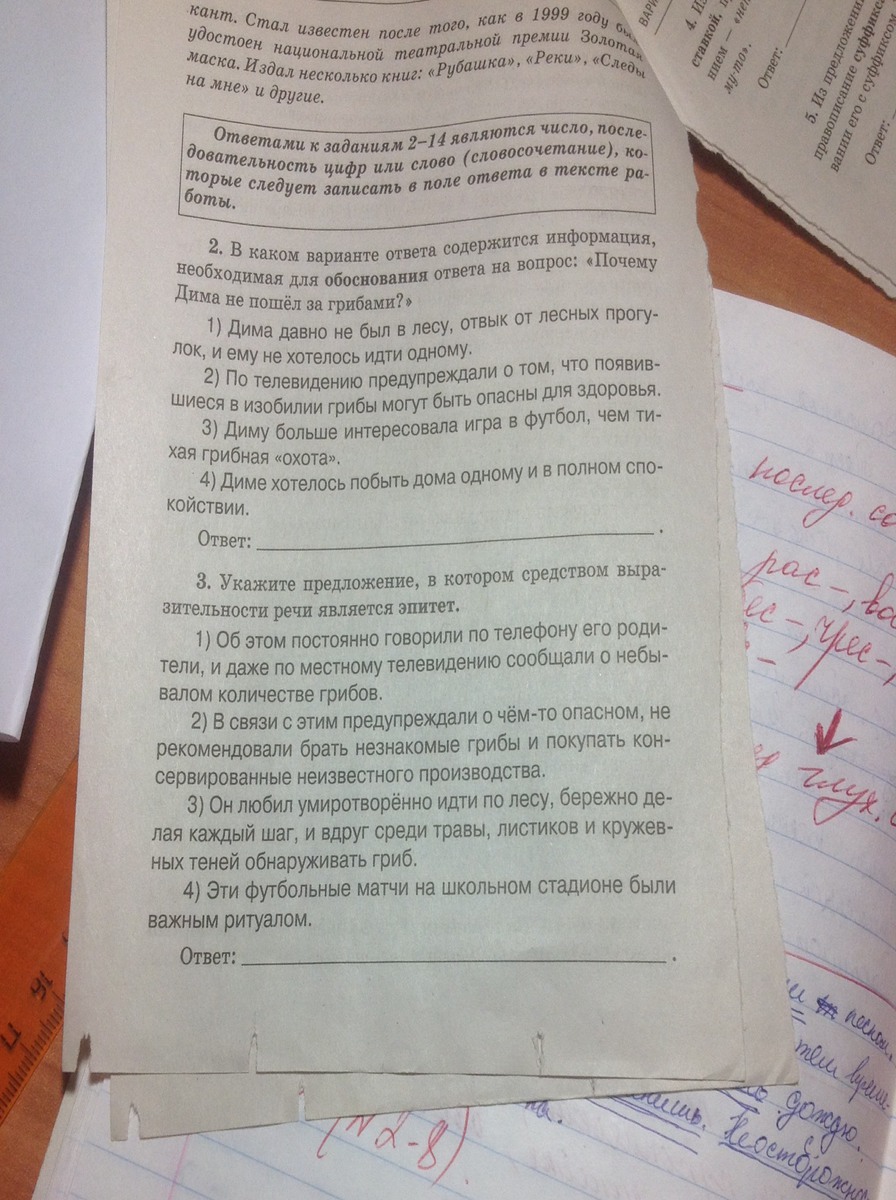 кант. Стал известен после того, как в 1999 году
удостоен национальной театральной премии Золотая
маска. Издал несколько книг: «Рубашка», «Реки», «Следы
на мне» и другие.
Ответами к заданиям 2–14 являются число, после-
довательность цифр или слово (словосочетание), ко-
торые следует записать в поле ответа в тексте ра-
боты.
2. В каком варианте ответа содержится информация,
необходимая для обоснования ответа на вопрос: «Почему
Дима не пошёл за грибами?»
1) Дима давно не был в лесу, отвык от лесных прогу-
лок, и ему не хотелось идти одному.
2) По телевидению предупреждали о том, что появив-
шиеся в изобилии грибы могут быть опасны для здоровья.
3) Диму больше интересовала игра в футбол, чем ти-
хая грибная «охота».
4) Диме хотелось побыть дома одному и в полном спо-
койствии.
Ответ:
3. Укажите предложение, в котором средством выра-
зительности речи является эпитет.
1) Об этом постоянно говорили по телефону его роди-
тели, и даже по местному телевидению сообщали о небы-
валом количестве грибов.
2) В связи с этим предупреждали о чём-то опасном, не
рекомендовали брать незнакомые грибы и покупать кон-
сервированные неизвестного производства.
3) Он любил умиротворённо идти по лесу, бережно де-
лая каждый шаг, и вдруг среди травы, листиков и кружев-
ных теней обнаруживать гриб.
4) Эти футбольные матчи на школьном стадионе были
важным ритуалом.
Ответ:
4. Из
ставкой,
нием — «не
му-то».
Ответ:
5. Из предложения
правописание суффикса
вании его с суффиксом
Ответ:
послед.
рас-,
чрес-,
глух.
дождю.
(N 2-8)